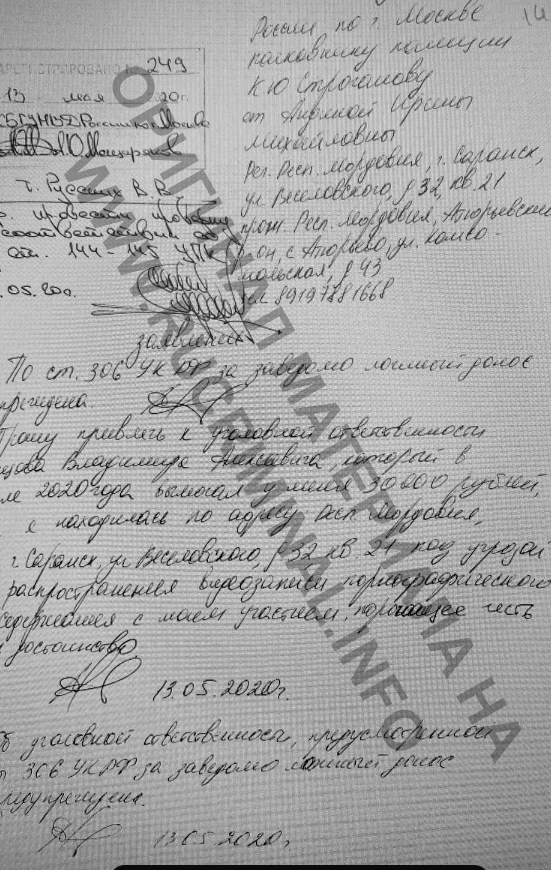 России по г. Москве
полковнику полиции
К Ю Строганову
от Ирины
Михайловны
Рег. Респ. Мордовия, г. Саранск,
ул Веселовского, д 32, кв. 21
прож. Респ. Мордовия, Атюрьевский
он, с Атюрьево, ул. Комсо-
мольская, д 43
89197781668
АРЕГИСТРИРОВАНО 249
13 мая 20г.
России по г. Москве
г. Русских В. В.
провести проверку
соответствии со
ст. 144-145 УПК
.05.20г.
заявление
По ст. 306 УК РФ за заведомо ложный донос
Прошу привлечь к уголовной ответственности
Владимира Алексеевича, который в
2020 года вымогал у меня 30000 рублей,
я находилась по адресу Респ Мордовия,
г. Саранск, ул Веселовского, д 32 кв. 21 под угрозой
распространения видеозаписи порнографического
содержания с моим участием, порочащее честь
и достоинство
13.05.2020г.
Об уголовной ответственности, предусмотренной
306 УК РФ за заведомо ложный донос
предупреждена.
13.05.2020г.
ОРИГИНАЛ МАТЕРИАЛА НА
WWW.RUCRIMINAL.INFO